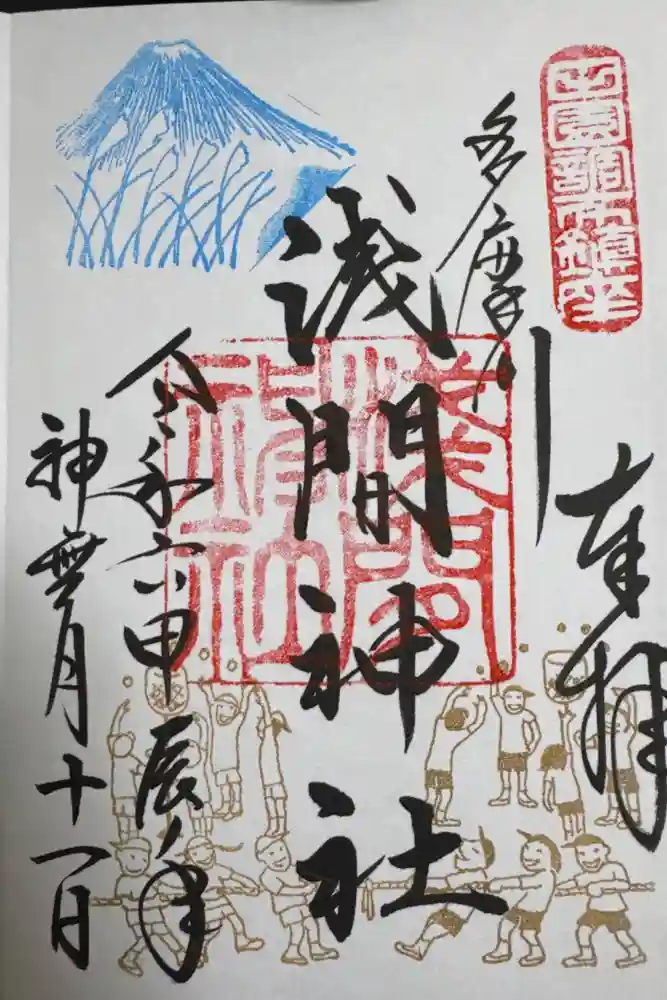 田園調布鎮座
奉拝
多摩川
浅間神社
浅間神社
令和六甲辰年
神無月十一日